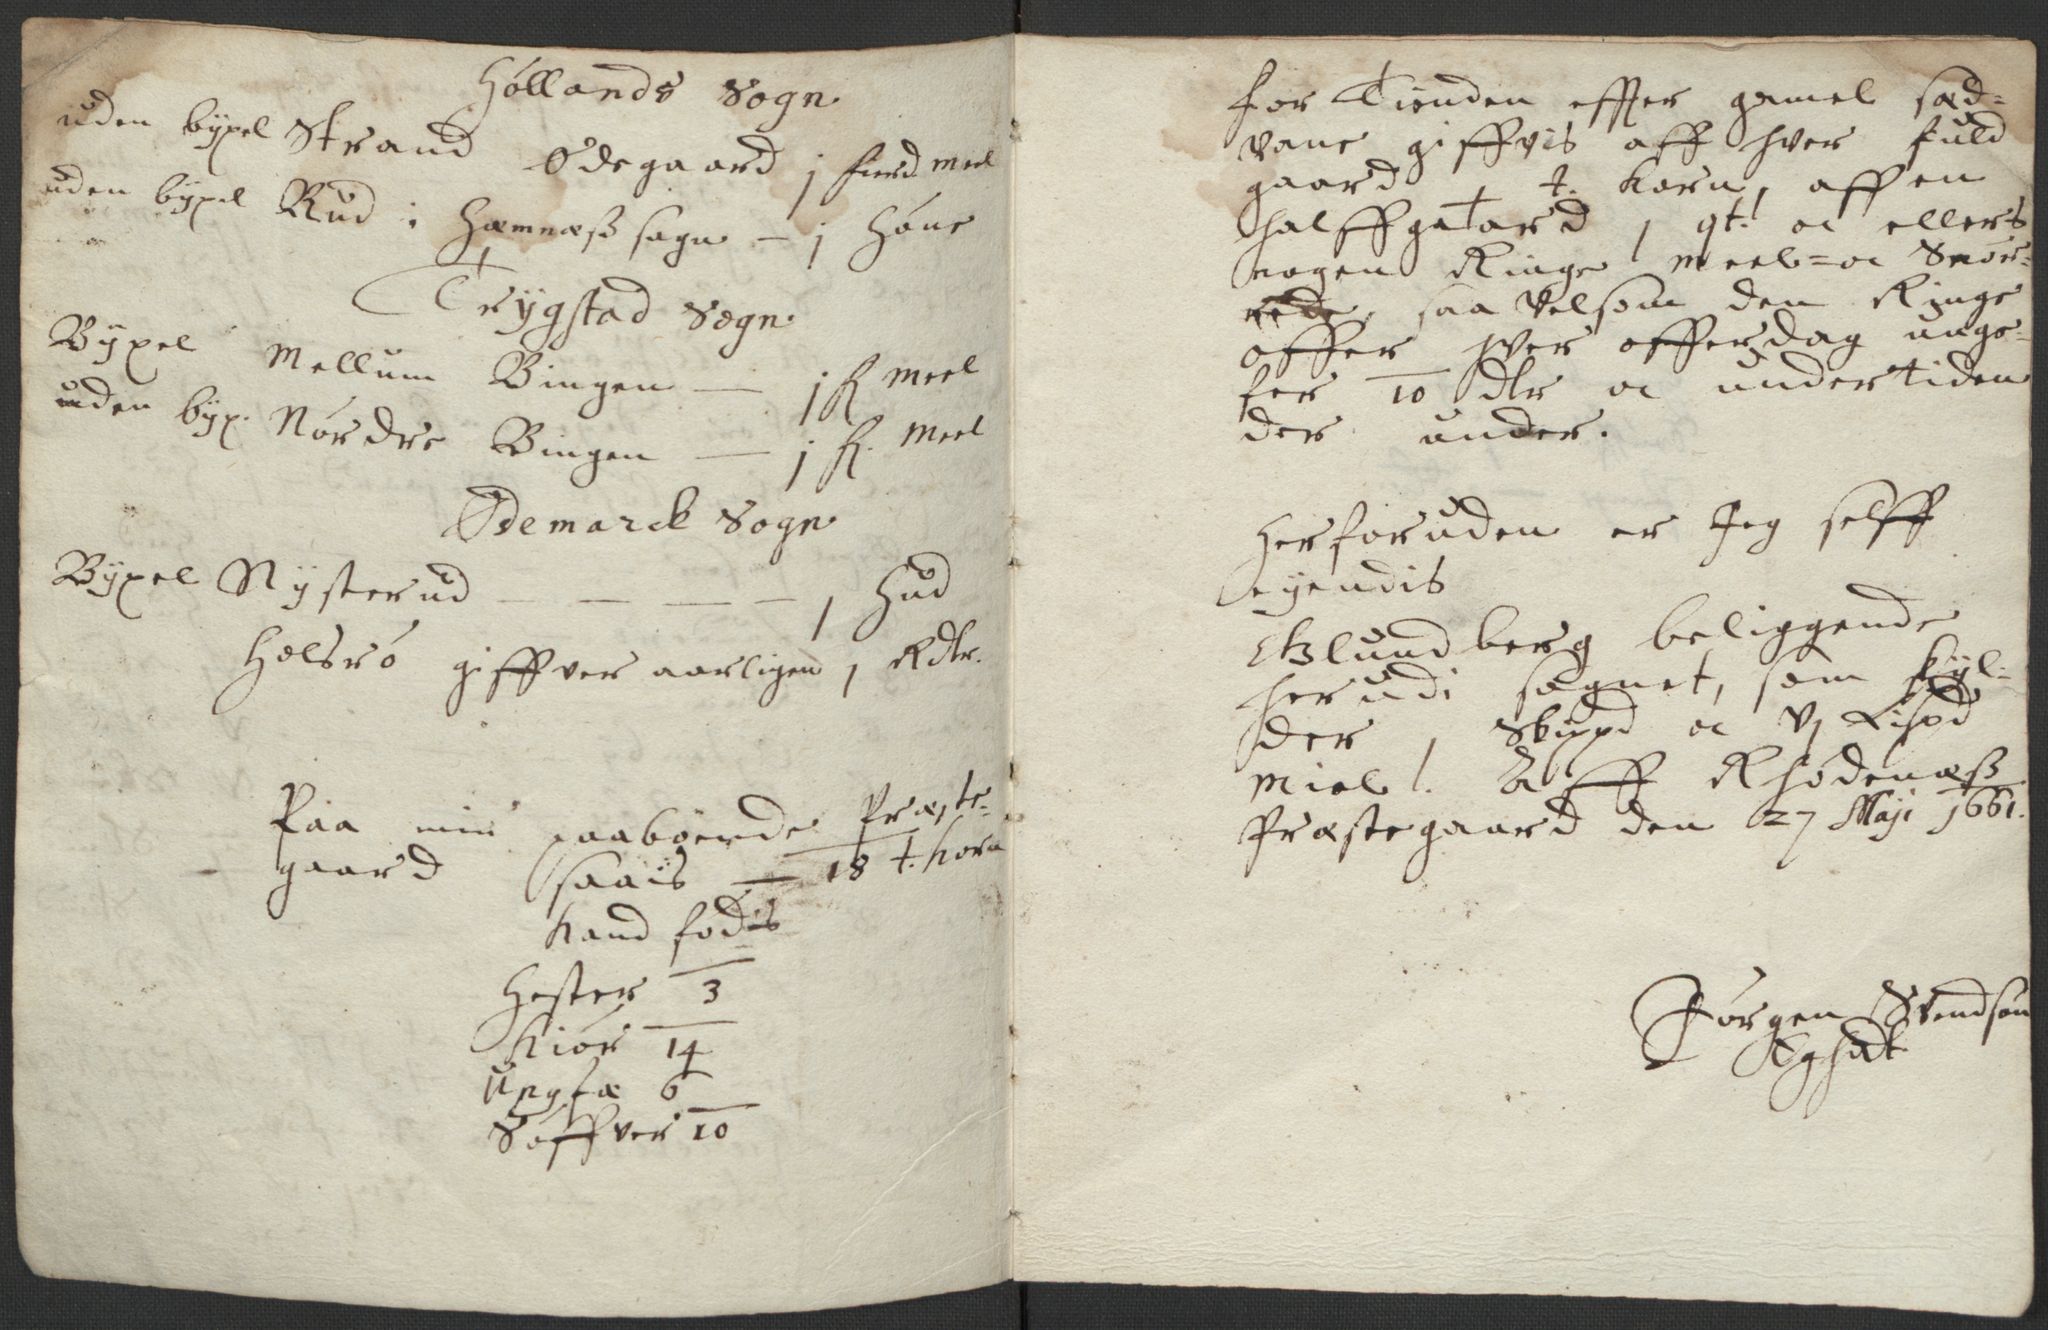 Höllands Sogn
uden bÿxel Strand Ödegaard j fierd. meel
uden bÿxel Rud i Hæmnæss sogn – j Höns
Trÿgstad Sogn
Bÿxel Mellum Bingen — j f. meel
uden bÿx. Nördre Bingen — j f. meel
Ödemarck Sogn
Bÿxel Nÿsterud — — — — 1 Hud
Holsrö giffver aarligen 1 Rdlr.
Paa min paaböende Præste-
gaard saais — 18 t. korn
kand födis
Hester 3
Kiör 14
Ungfæ 6
Söffver 10
For Tienden effter gamel sæd=
vane giffvis aff hver fuld
gaard t. korn, aff en
halff gaard 1 qt. oc ellers
nogen Ringe meel= oc Smör=
rede, saa velsom den Ringe
offer hver offersdag unge-
fer 10 dlr oc undertiden
der under.
Herforuden er Jeg selff
eÿendis
Blundberg beliggende
her udi sognet, som skÿl=
der 1 Skippd oc vj Lispd
miel. Aff Rhödenæss
Præstegaard den 27 Maji 1661.
Jörgen Svendsön